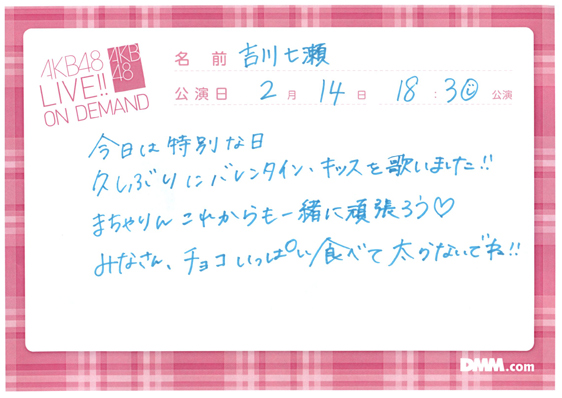 AKB48
LIVE!!
ON DEMAND
AKB
48
名前 吉川七瀬
公演日 2月 14日 18:30 公演
今日は特別な日
久しぶりにバレンタイン・キッスを歌いました!!
まちゃりんこれからも一緒に頑張ろう♡
みなさん、チョコいっぱい食べて太らないでね!!
DMM.com